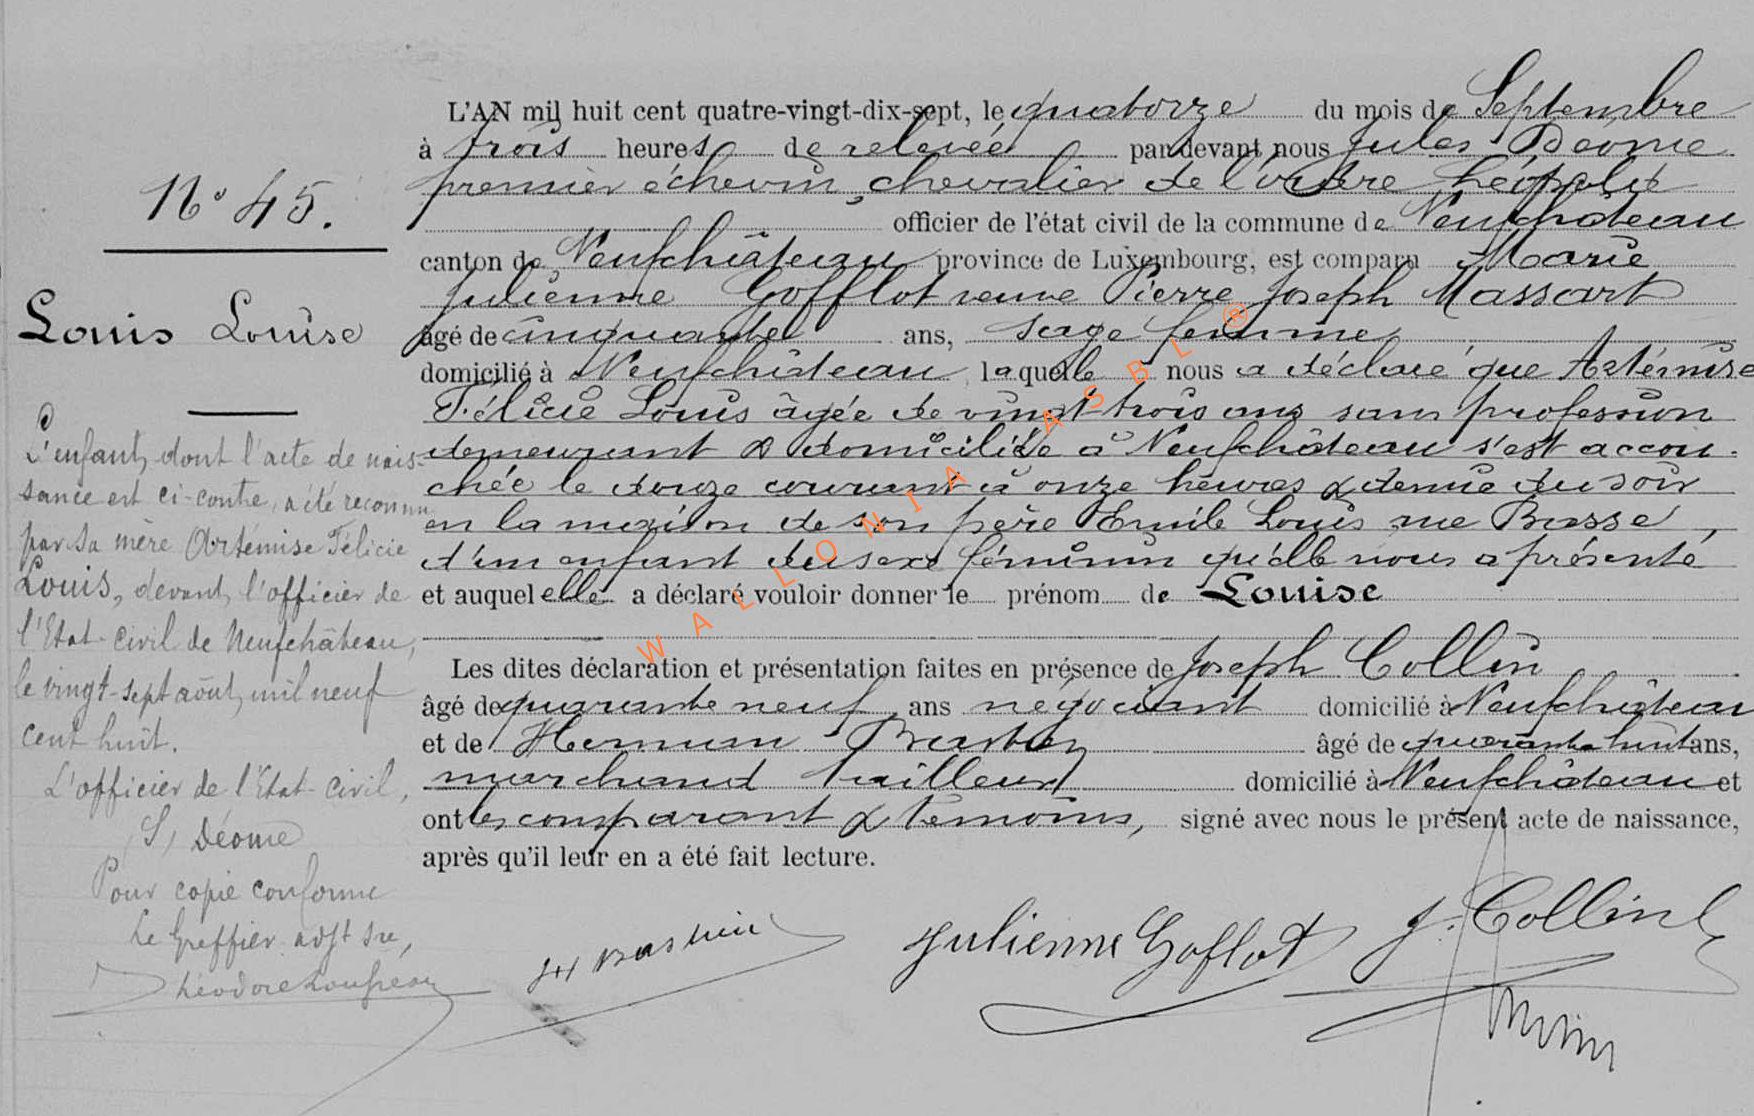 N° 45.
Louis Louise
L'enfant, dont l'acte de nais-
sance est ci-contre, a été reconnu
par sa mère Artémise Félicie
Louis, devant l'officier de
l'Etat-civil de Neufchâteau,
le vingt-sept août mil neuf
cent huit.
L'officier de l'Etat-civil,
(S) Déome
Pour copie conforme
Le Greffier adjt
L'AN mil huit cent quatre-vingt-dix-sept, le quatorze du mois de Septembre
à trois heures de relevée par devant nous Jules Déome
premier échevin, chevalier de l'ordre Léopold
officier de l'état civil de la commune de Neufchâteau
canton de Neufchâteau province de Luxembourg, est comparu Marie
Julienne Gofflot veuve Pierre Joseph Massart
âgé de cinquante ans, sage femme
domicilié à Neufchâteau laquelle nous a déclaré que Artémise
Félicie Louis âgée de vingt-trois ans sans profession
demeurant & domiciliée à Neufchâteau s'est accou-
chée le douze courant à onze heures & demie du soir
en la maison de son père Emile Louis rue Basse,
d'un enfant du sexe féminin qu'elle nous a présenté
et auquel elle a déclaré vouloir donner le prénom de Louise
Les dites déclaration et présentation faites en présence de Joseph Collin
âgé de quarante neuf ans négociant domicilié à Neufchâteau
et de Herman Bastien âgé de quarante huit ans,
marchand tailleur domicilié à Neufchâteau et
ont les comparant & témoins, signé avec nous le présent acte de naissance,
après qu'il leur en a été fait lecture.
Bastien Julienne Goflot J. Collin
WALLONIA ASBL ®